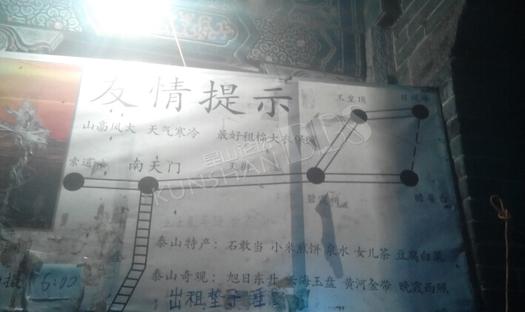 友情提示
山高风大 天气寒冷 最好租棉大衣保暖
玉皇顶
索道 南天门 天街
泰山特产：石敢当 小米煎饼 泉水 女儿茶 豆腐白菜
泰山奇观：旭日东升 云海玉盘 黄河金带 晚霞夕照
出租垫子
5:00
KUNSHAN